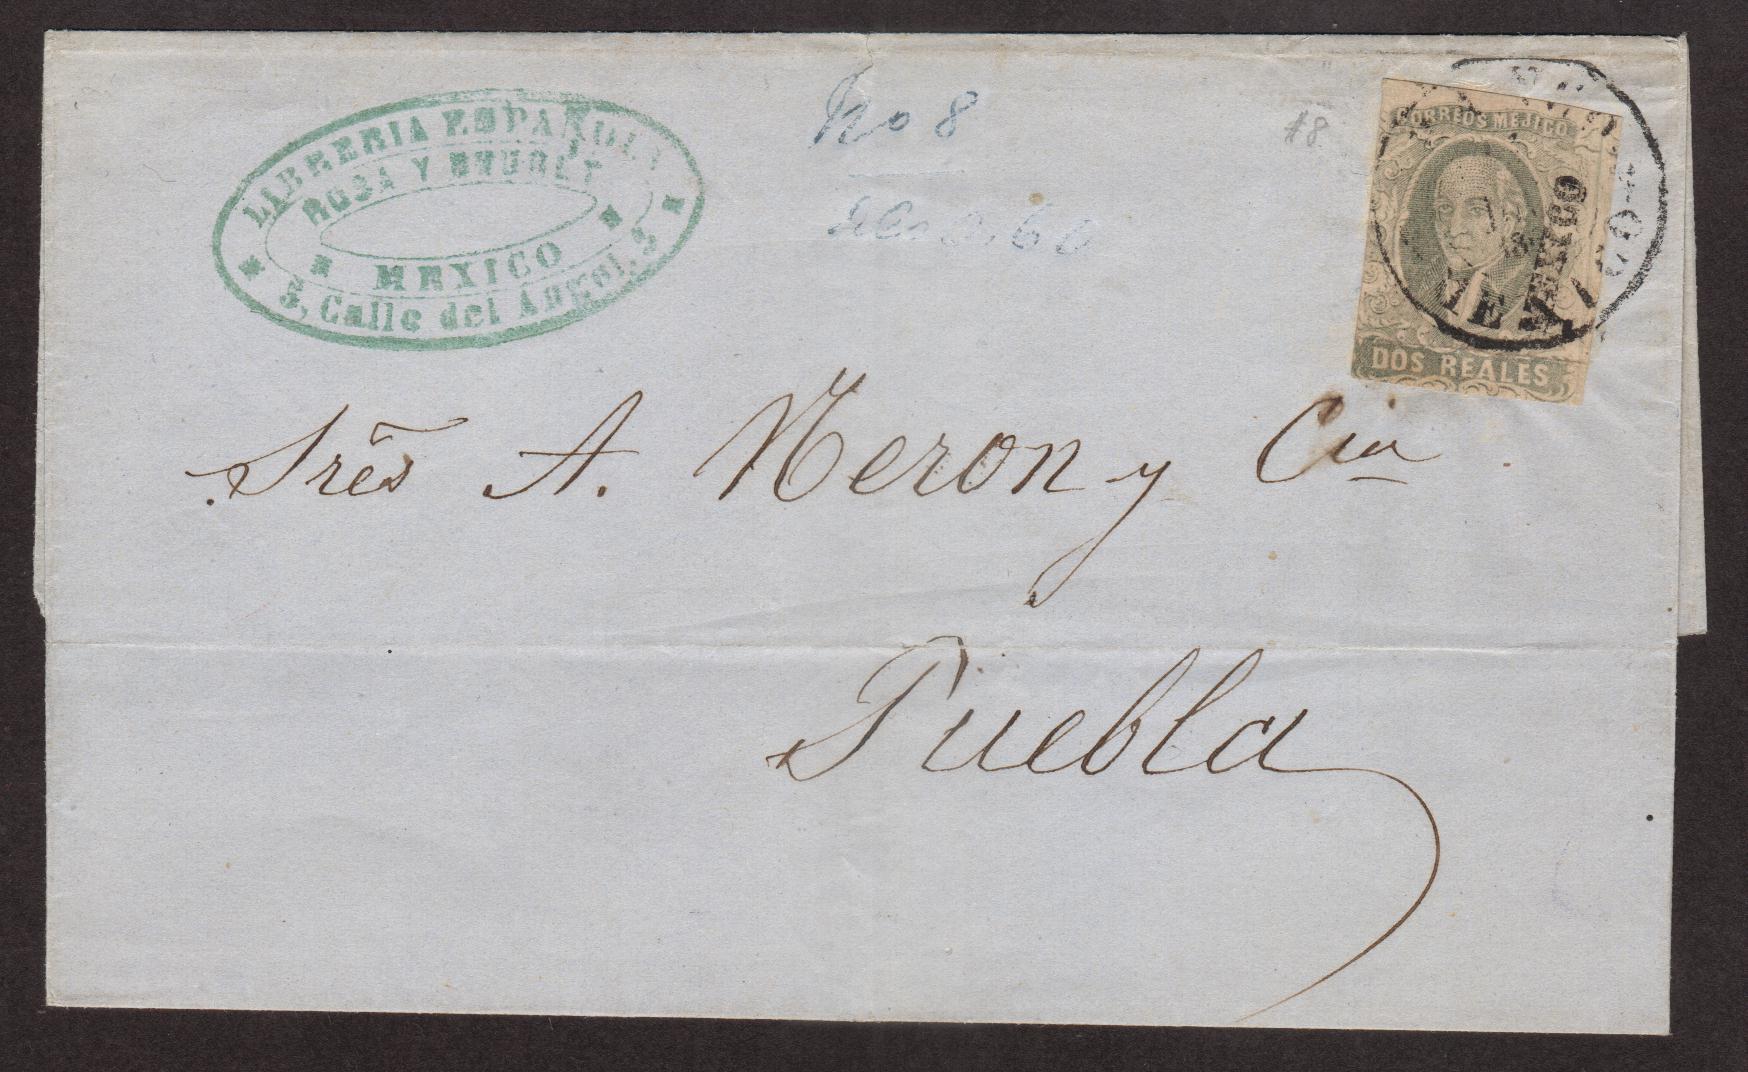 LIBRERIA ESPAÑOLA
ROSA Y BOURET
MEXICO
5, Calle del Angel, 5
No 8
#8
CORREOS MEJICO
MEXICO
DOS REALES
Srẽs A. Neron y Cia
Puebla